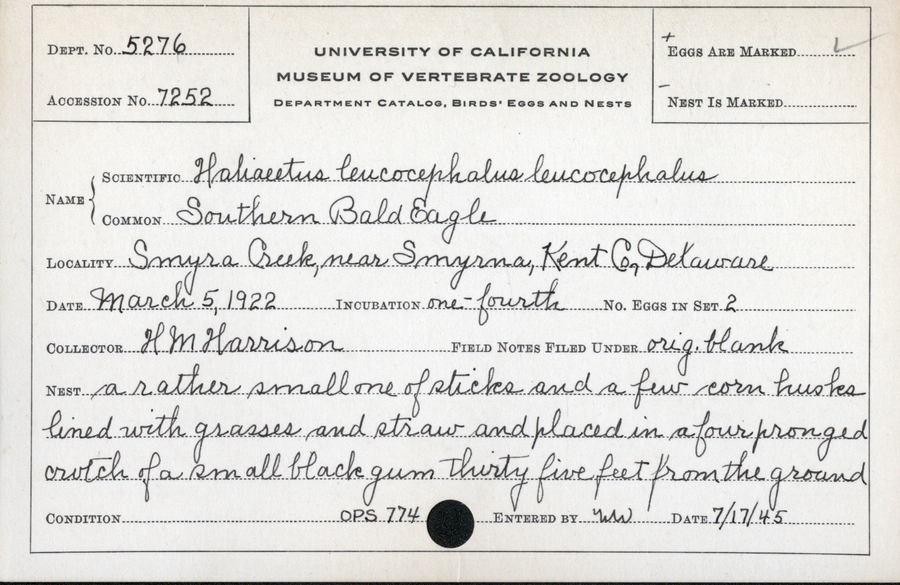 DEPT. No. 5276
ACCESSION No. 7252
UNIVERSITY OF CALIFORNIA
MUSEUM OF VERTEBRATE ZOOLOGY
DEPARTMENT CATALOG, BIRDS' EGGS AND NESTS
+ EGGS ARE MARKED ✓
- NEST IS MARKED
NAME { SCIENTIFIC Haliaeetus leucocephalus leucocephalus
COMMON Southern Bald Eagle
LOCALITY Smyra Creek, near Smyrna, Kent Co, Delaware
DATE March 5, 1922 INCUBATION one-fourth No. EGGS IN SET 2
COLLECTOR H M Harrison FIELD NOTES FILED UNDER orig. blank
NEST a rather small one of sticks and a few corn husks
lined with grasses and straw and placed in a four pronged
crotch of a small black gum thirty five feet from the ground
CONDITION OPS 774 ENTERED BY DATE 7/17/45